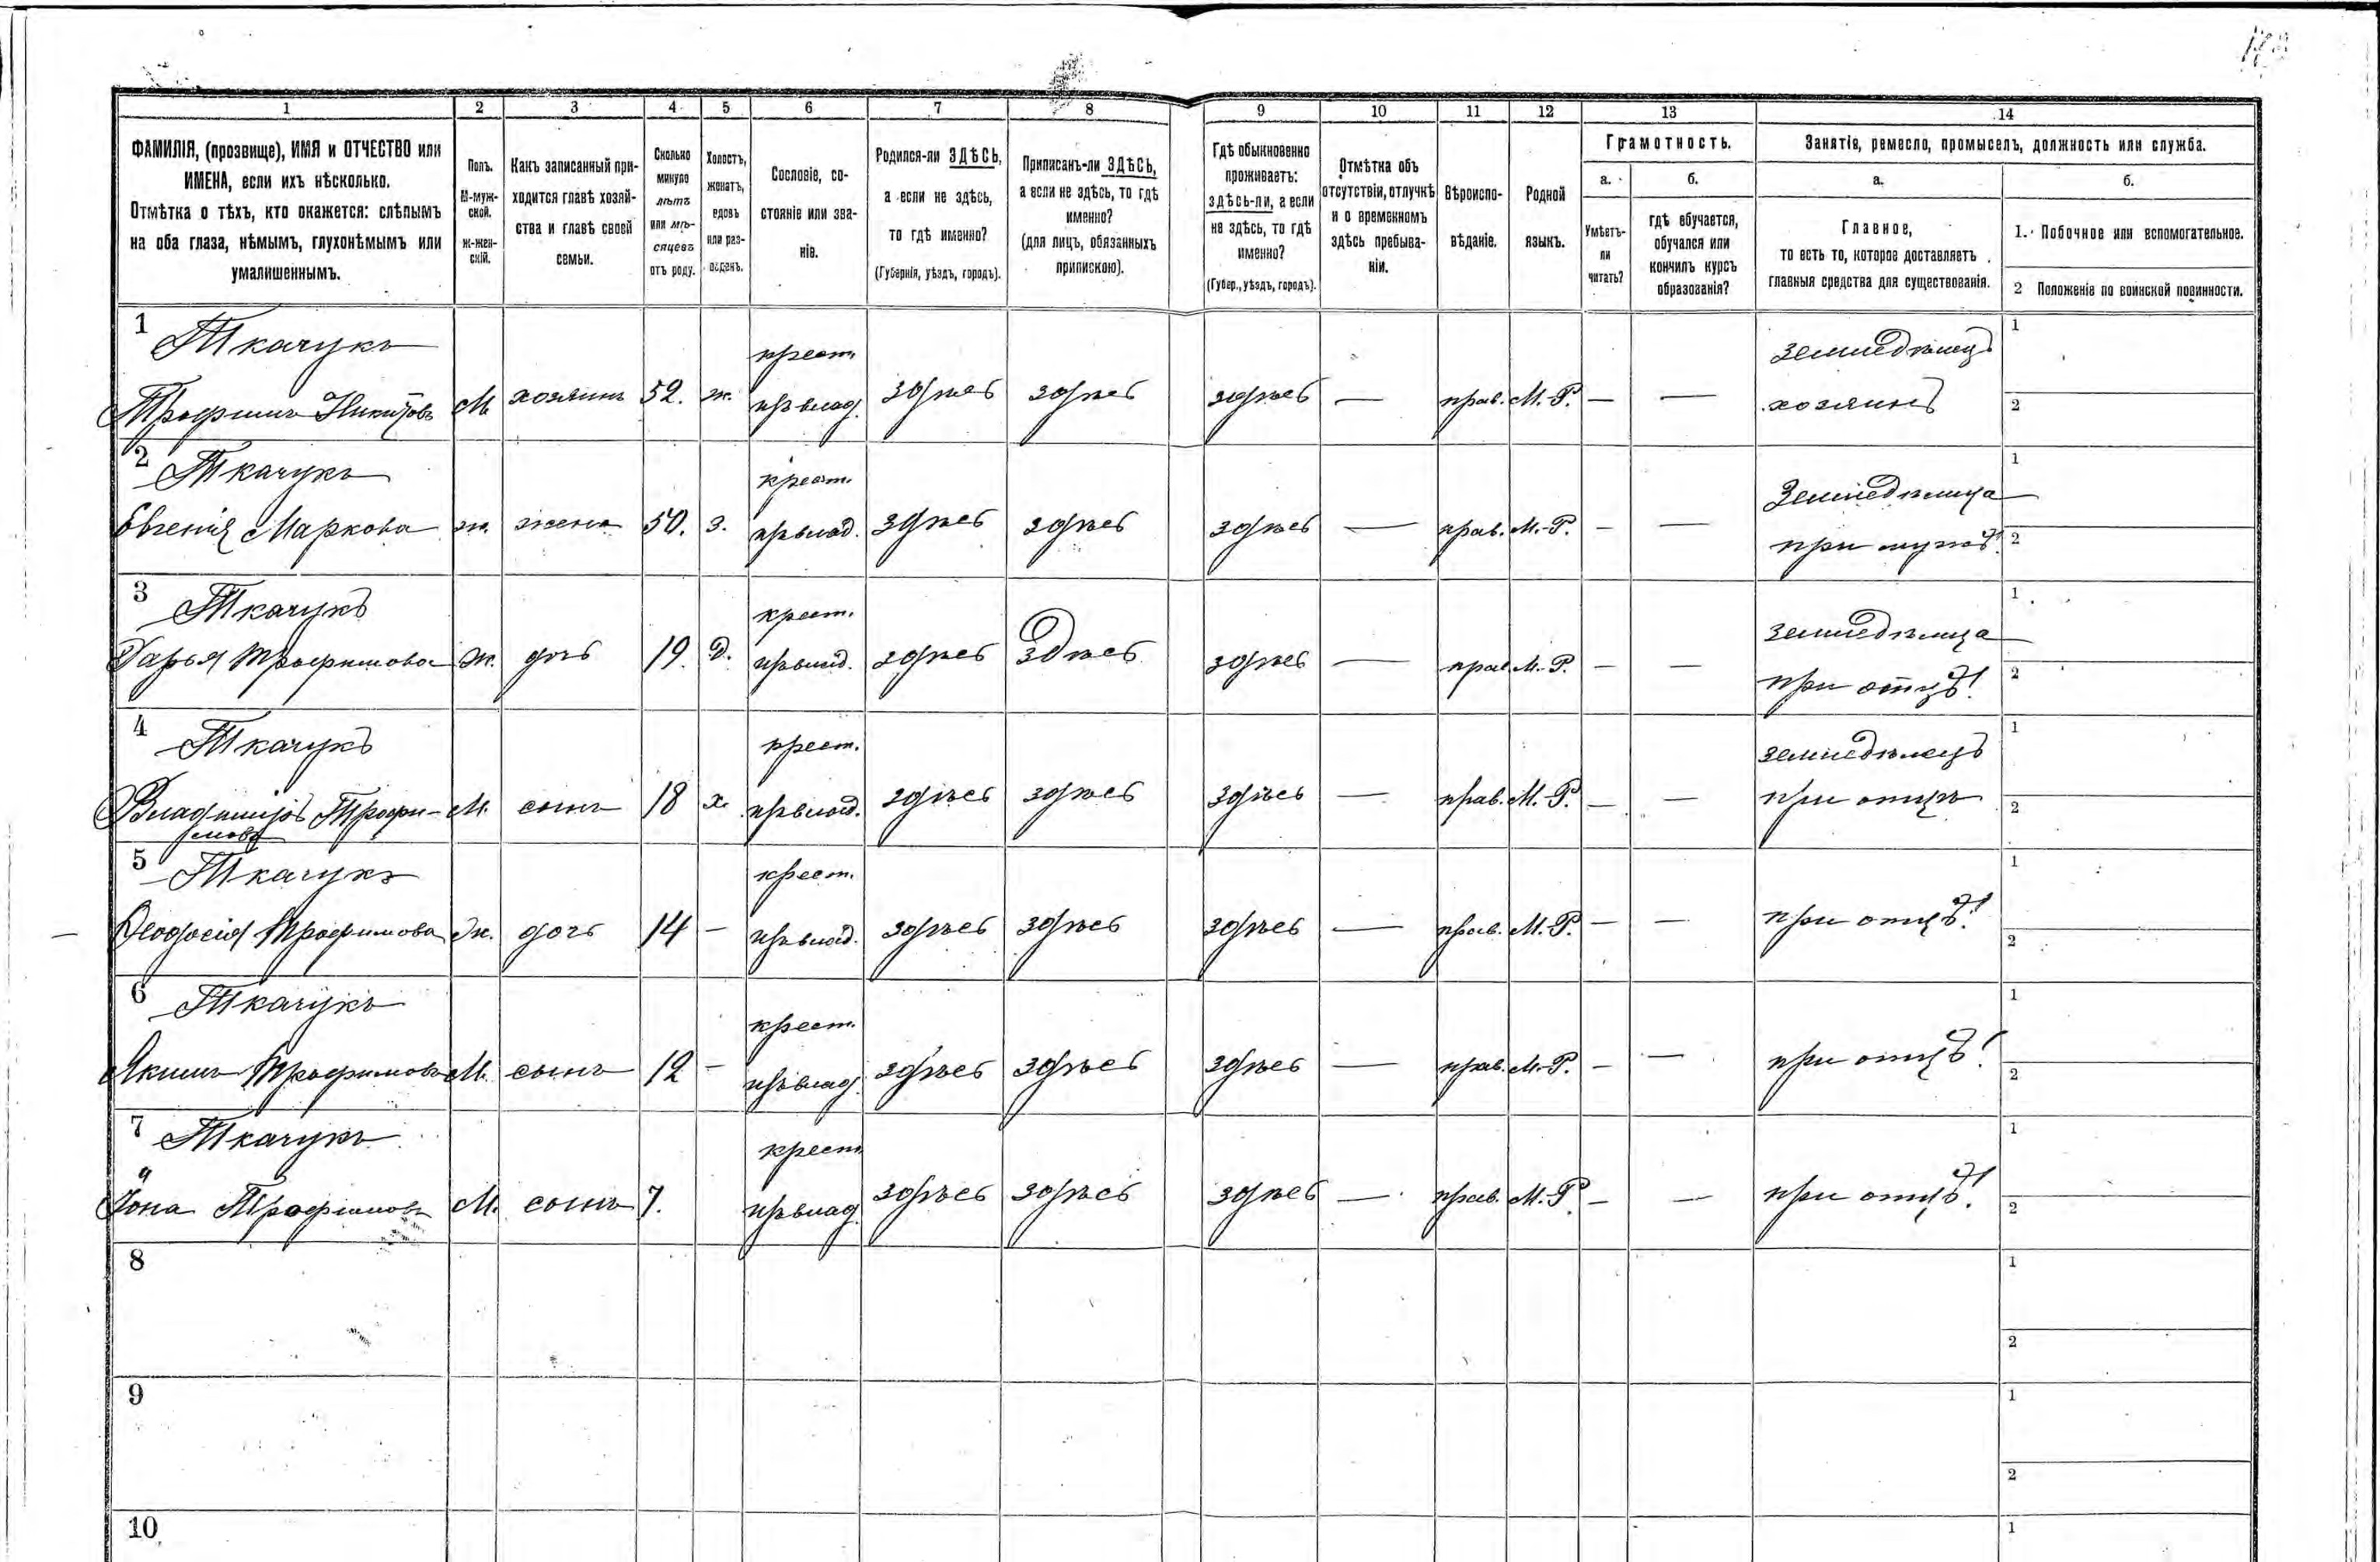 1 2 3 4 5 6 7 8 9 10 11 12 13 14
ФАМИЛІЯ, (прозвище), ИМЯ и ОТЧЕСТВО или
ИМЕНА, если ихъ нѣсколько.
Отмѣтка о тѣхъ, кто окажется: слѣпымъ
на оба глаза, нѣмымъ, глухонѣмымъ или
умалишеннымъ.
Полъ.
М-муж-
ской.
ж-жен-
скій.
Какъ записанный при-
ходится главѣ хозяй-
ства и главѣ своей
семьи.
Сколько
минуло
лѣтъ
или мѣ-
сяцевъ
отъ роду.
Холостъ,
женатъ,
вдовъ
или раз-
веденъ.
Сословіе, со-
стояніе или зва-
ніе.
Родился-ли ЗДѢСЬ,
а если не здѣсь,
то гдѣ именно?
(Губернія, уѣздъ, городъ).
Приписанъ-ли ЗДѢСЬ,
а если не здѣсь, то гдѣ
именно?
(для лицъ, обязанныхъ
припискою).
Гдѣ обыкновенно
проживаетъ:
здѣсь-ли, а если
не здѣсь, то гдѣ
именно?
(Губер., уѣздъ, городъ).
Отмѣтка объ
отсутствіи, отлучкѣ
и о временномъ
здѣсь пребыва-
ніи.
Вѣроиспо-
вѣданіе.
Родной
языкъ.
Грамотность.
а.
Умѣетъ-
ли
читать?
б.
гдѣ обучается,
обучался или
кончилъ курсъ
образованія?
Занятіе, ремесло, промыселъ, должность или служба.
а.
Главное,
то есть то, которое доставляетъ
главныя средства для существованія.
б.
1. Побочное или вспомогательное.
2 Положеніе по воинской повинности.
1 Ткачукъ крест. земледѣлецъ 1
Трофимъ Никитовъ М хозяинъ 52. ж. пр. влад. здѣсь здѣсь здѣсь — прав. М.-Р. — — хозяинъ 2
2 Ткачукъ крест. Земледѣлица 1
Евгенія Маркова ж. жена 50. з. пр. влад. здѣсь здѣсь здѣсь — прав. М.-Р. — — при мужѣ. 2
3 Ткачукъ крест. земледѣлица 1
Дарья Трофимова ж. дочь 19. д. пр. влад. здѣсь здѣсь здѣсь — прав М.-Р. — — при отцѣ! 2
4 Ткачукъ крест. земледѣлецъ 1
Владиміръ Трофи- М. сынъ 18 х. пр. влад. здѣсь здѣсь здѣсь — прав. М.-Р. — — при отцѣ 2
мовъ
5 Ткачукъ крест. 1
Феодосія Трофимова ж. дочь 14 — пр. влад. здѣсь здѣсь здѣсь — прав. М.-Р. — — при отцѣ! 2
6 Ткачукъ крест. 1
Якимъ Трофимовъ М. сынъ 12 — пр. влад. здѣсь здѣсь здѣсь — прав. М.-Р. — — при отцѣ! 2
7 Ткачукъ крест 1
Іона Трофимовъ М. сынъ 7. пр. влад. здѣсь здѣсь здѣсь — прав. М.-Р. — — при отцѣ! 2
8 1
2
9 1
2
10 1